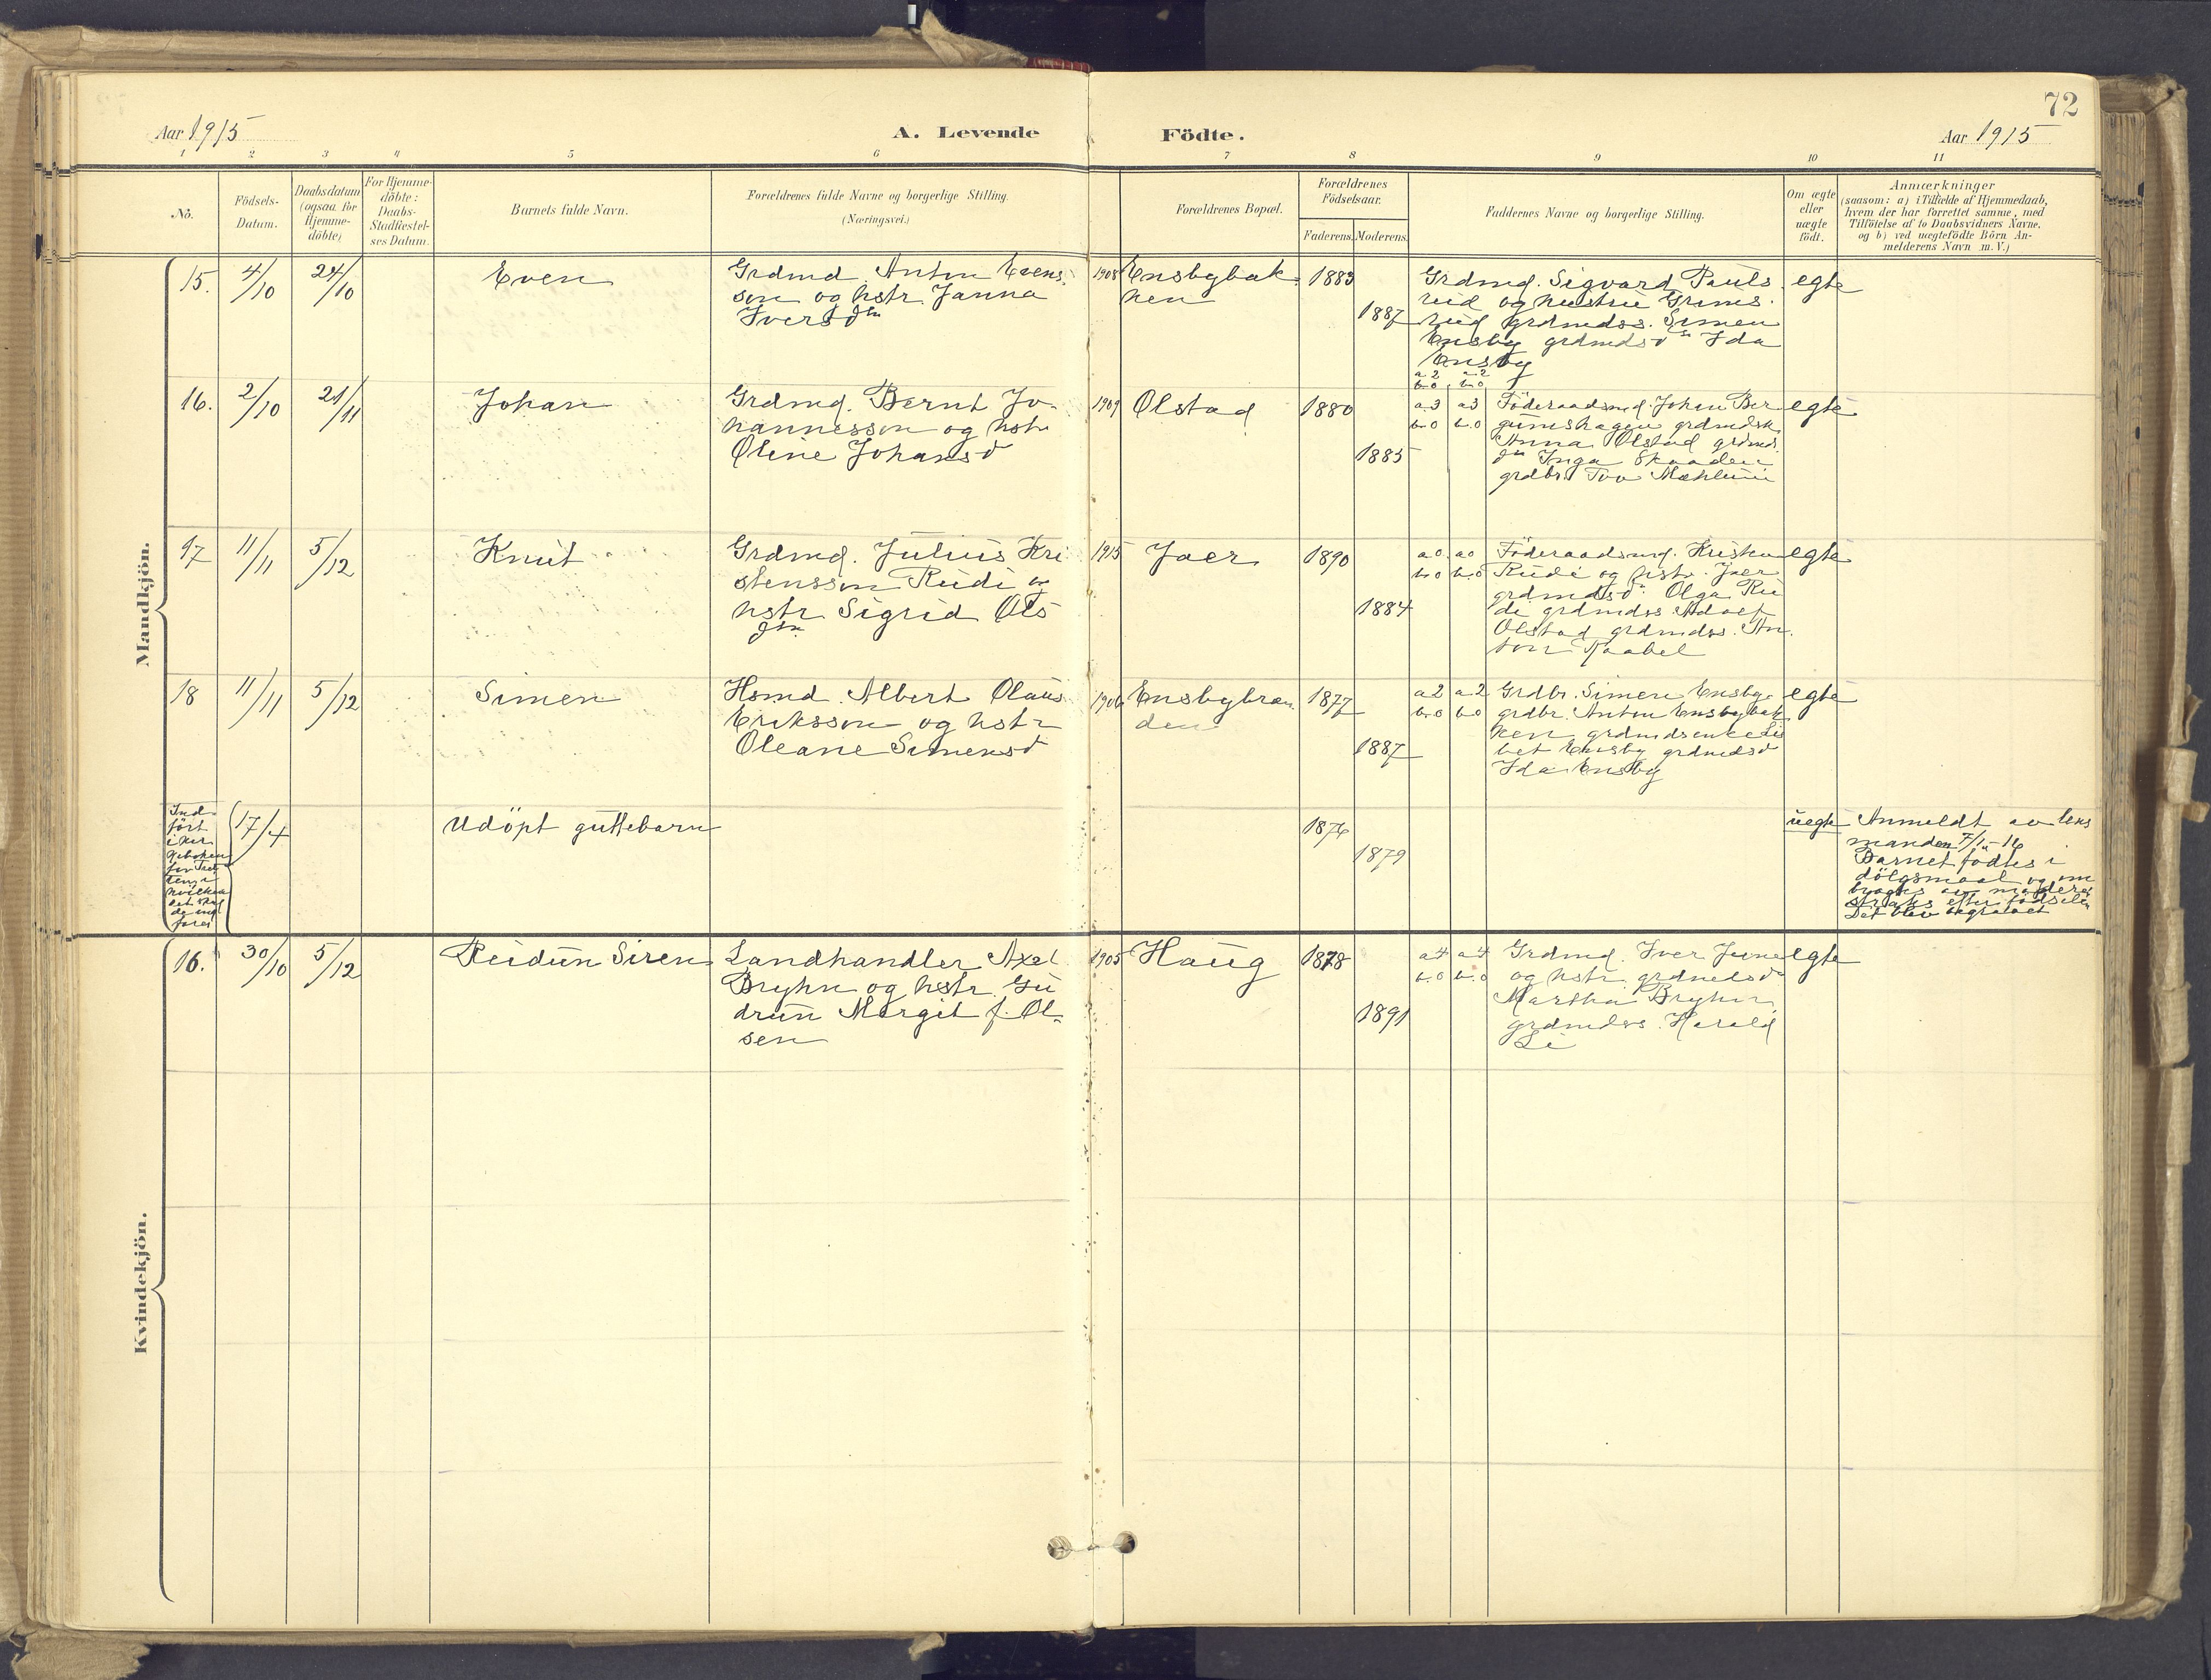 72
Aar 1915
A. Levende
Födte.
Aar 1915
1 2 3 4 5 6 7 8 9 10 11
No.
Födsels-
Datum.
Daabsdatum
(ogsaa for
Hjemme-
döbte)
For Hjemme-
döbte:
Daabs-
Stadfæstel-
ses Datum.
Barnets fulde Navn.
Forældrenes fulde Navne og borgerlige Stilling.
(Næringsvei.)
Forældrenes Bopæl.
Forældrenes
Födselsaar.
Faderens.
Moderens.
Faddernes Navne og borgerlige Stilling.
Om ægte
eller
uægte
födt.
Anmærkninger
(saasom: a) i Tilfælde af Hjemmedaab,
hvem der har forrettet samme, med
Tilföielse af to Daabsvidners Navne.
og b) ved uegtefödte Börn An-
melderens Navn m. V.)
Mandkjön.
15.
4/10
24/10
Even
Grdmd. Anton Evens
son og hstr. Janna
Iversdtr
1908
Ensbybak
ken
1883
1887
Grdmd. Sigvard Pauls
rud og hustru Grims
rud grdmdss. Simen
Ensby grdmdsdtr Ida
Ensby
a2 a2
b0 b0
egte
16.
2/10
21/11
Johan
Grdmd. Bernt Jo-
hannesson og hstr
Oline Johansd
1909
Olstad
1880
1885
a3 a3
b0 b0
Föderaadsmd. Johan Ber
gumshagen grdmdsk
Anna Olstad grdmds
dtr Inga Skaaden
grdbr. Tov Mæhlum
egte
17
11/11
5/12
Knut
Grdmd. Julius Kri
stensson Rudi og
hstr Sigrid Ols
dtr
1915
Jaer
1890
1884
a0 a0
b0 b0
Föderaadsmd. Kristen
Rudi og hstr. Jaer
grdmdsd. Olga Ru
di grdmdss Adolf
Olstad grdmdss. An
ton Kaabel
egte
18
11/11
5/12
Simen
Hsmd. Albert Olaus
Eriksson og hstr
Oleane Simensd
1906
Ensbybraa
den
1877
1887
a2 a2
b0 b0
Grdbr. Simen Ensby
grdbr. Anton Ensbybak
ken grdmdsenke Lis
bet Ensby grdmdsd
Ida Ensby
egte
Ind
fört
i kir
keboken
for Tret
ten i
hvilken
det skul
de ind
föres
17/4
Udöpt guttebarn
1876
1879
uegte
Anmeldt av lens
manden 7/1-16
Barnet födtes i
dölgsmaal og om
bragtes av moderen
straks efter födselen
Det blev begravet
Kvindekjön.
16.
30/10
5/12
Reidun Siren
Landhandler Axel
Bryhn og hstr. Gu
drun Margit f. Ol-
sen
1905
Haug
1878
1891
a4 a4
b0 b0
Grdmd. Iver June
og hstr. grdmdsd
Martha Bryhn
grdmdss. Harald
Li
egte